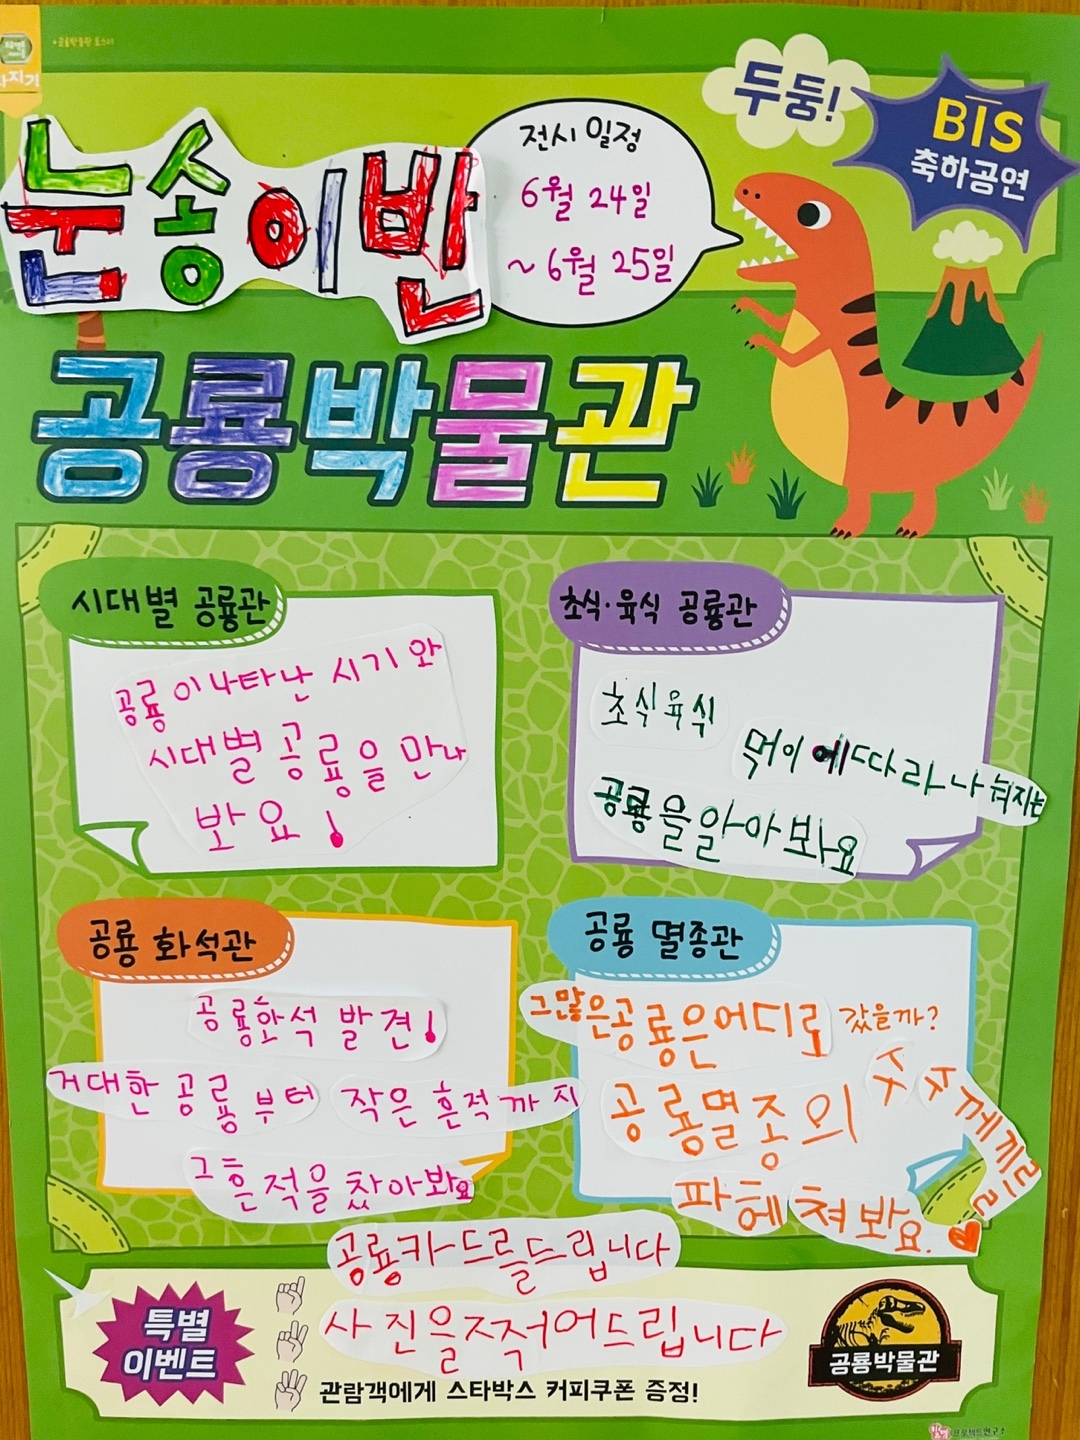 공룡박물관 포스터
두둥!
BIS
축하공연
눈송이반
전시 일정
6월 24일
~ 6월 25일
공룡박물관
시대별 공룡관
공룡이나타난 시기와
시대별공룡을 만나
봐요!
초식·육식 공룡관
초식육식
먹이에따라나눠지는
공룡을알아봐요
공룡 화석관
공룡화석 발견!
거대한 공룡부터 작은 흔적까지
그흔적을찾아봐요
공룡 멸종관
그많은공룡은어디로 갔을까?
공룡멸종의 수수께끼를
파헤쳐봐요.
특별
이벤트
공룡카드를드립니다
사진을찍어드립니다
관람객에게 스타박스 커피쿠폰 증정!
공룡박물관